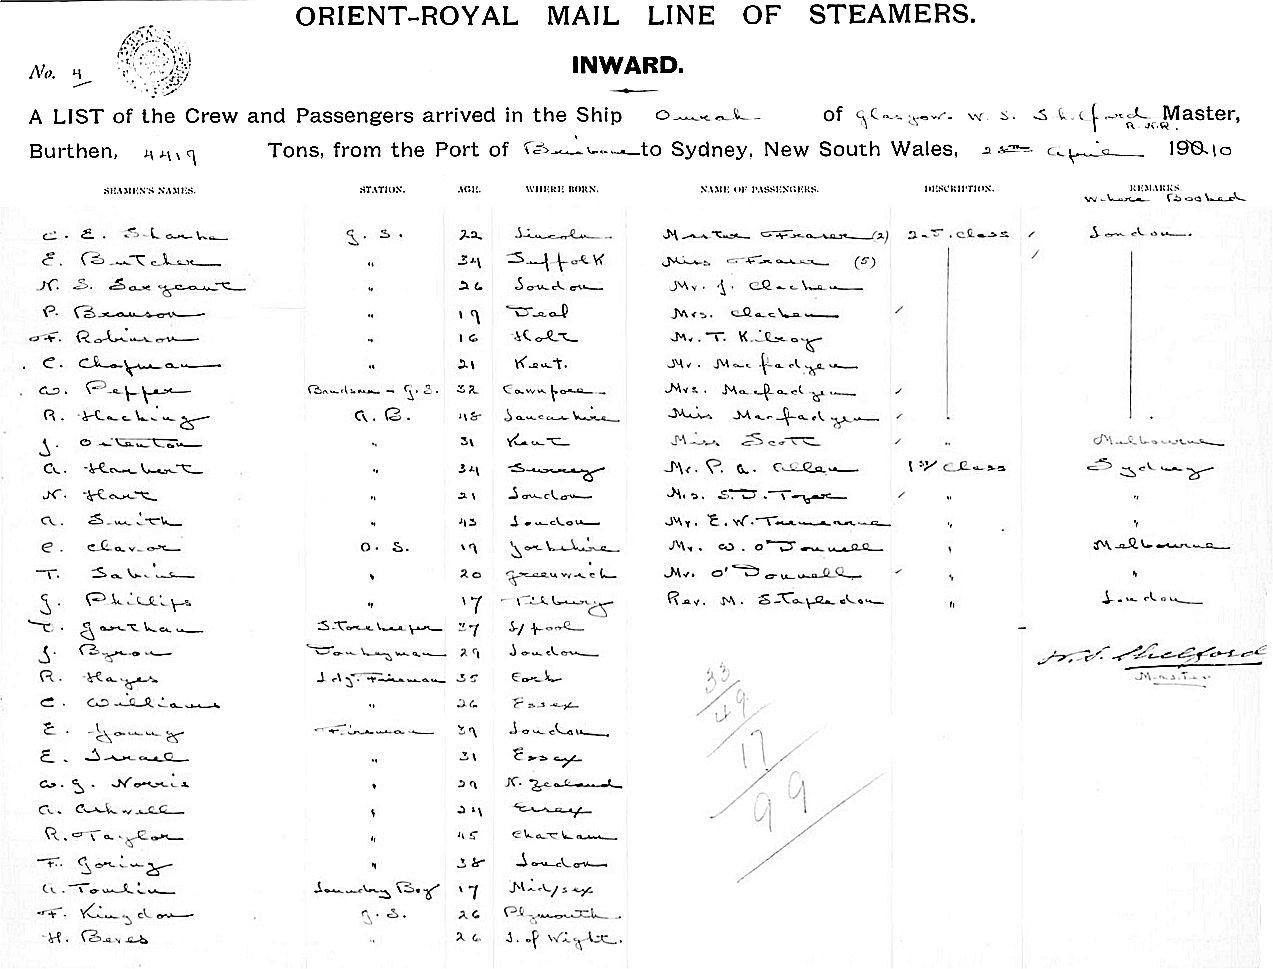 ORIENT-ROYAL MAIL LINE OF STEAMERS.
No. 4
INWARD.
A LIST of the Crew and Passengers arrived in the Ship Omrah of Glasgow. W. S. Shelford Master,
R.N.R.
Burthen, 4419 Tons, from the Port of Brisbane to Sydney, New South Wales, 25th April 19010
SEAMEN'S NAMES. STATION. AGE. WHERE BORN. NAME OF PASSENGERS. DESCRIPTION. REMARKS
Where Booked
C. E. Sharke G. S. 22 Lincoln. Master Fraser (2) 2nd. Class London.
E. Butcher " 34 Suffolk Miss Fraser (5)
N. S. Sargeant " 26 London Mr. J. Clachen
P. Branson " 19 Deal Mrs. Clachen
F. Robinson " 16 Holt Mr. T. Kilroy
C. Chapman " 21 Kent. Mr. Macfadyen
W. Pepper Bandsman - G. S. 32 Cawnpore Mrs. Macfadyen
R. Hacking A. B. 48 Lancashire Miss Macfadyen
J. " 31 Kent Miss Scott " Melbourne
A. Harbert " 34 Surrey Mr. P. A. Allen 1st Class Sydney
N. Hart " 21 London Mrs. S. J. Tozer " "
A. Smith " 43 London Mr. E. W. Tremearne " "
C. Claxor O. S. 19 Yorkshire Mr. W. O'Donnell " Melbourne
T. Sabine " 20 Greenwich Mr. O'Donnell " "
G. Phillips " 17 Tilbury Rev. M. Stapledon " London
T. Garthan Storekeeper 37 L'pool
J. Byron Donkeyman 29 London W. S. Shelford
R. Hayes Ldg. Fireman 35 Cork Master
C. Williams " 26 Essex 33
E. Young Fireman 39 London 49
E. Israel " 31 Essex 17
W. G. Norris " 29 N. Zealand
A. Arkwell " 24 Essex 99
R. Taylor " 45 Chatham
F. Goring " 38 London
A. Tomlin Laundry Boy 17 Mid/sex
F. Kingdon G. S. 26 Plymouth.
H. Beves " 26 I. of Wight.